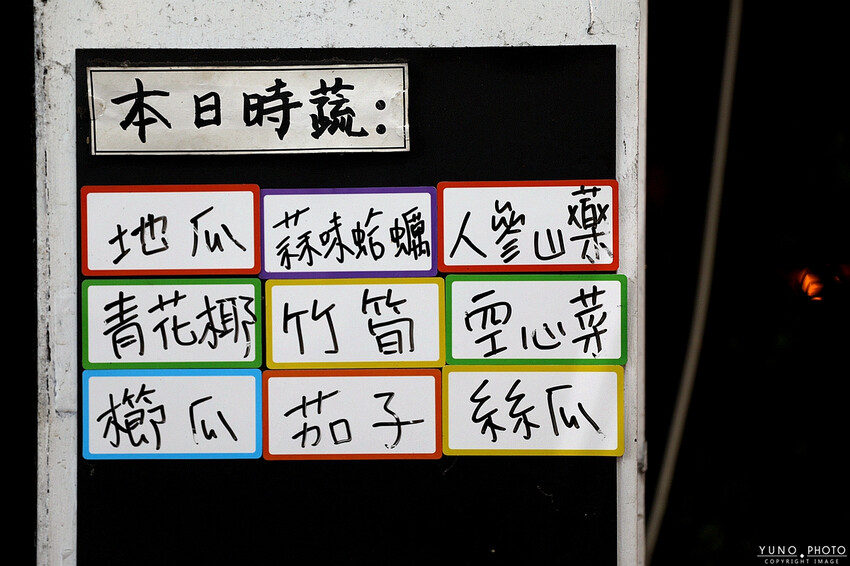 本日時蔬:
地瓜 蒜味蛤蠣 人參山藥
青花椰 竹筍 空心菜
櫛瓜 茄子 絲瓜
YUNO PHOTO
COPYRIGHT IMAGE